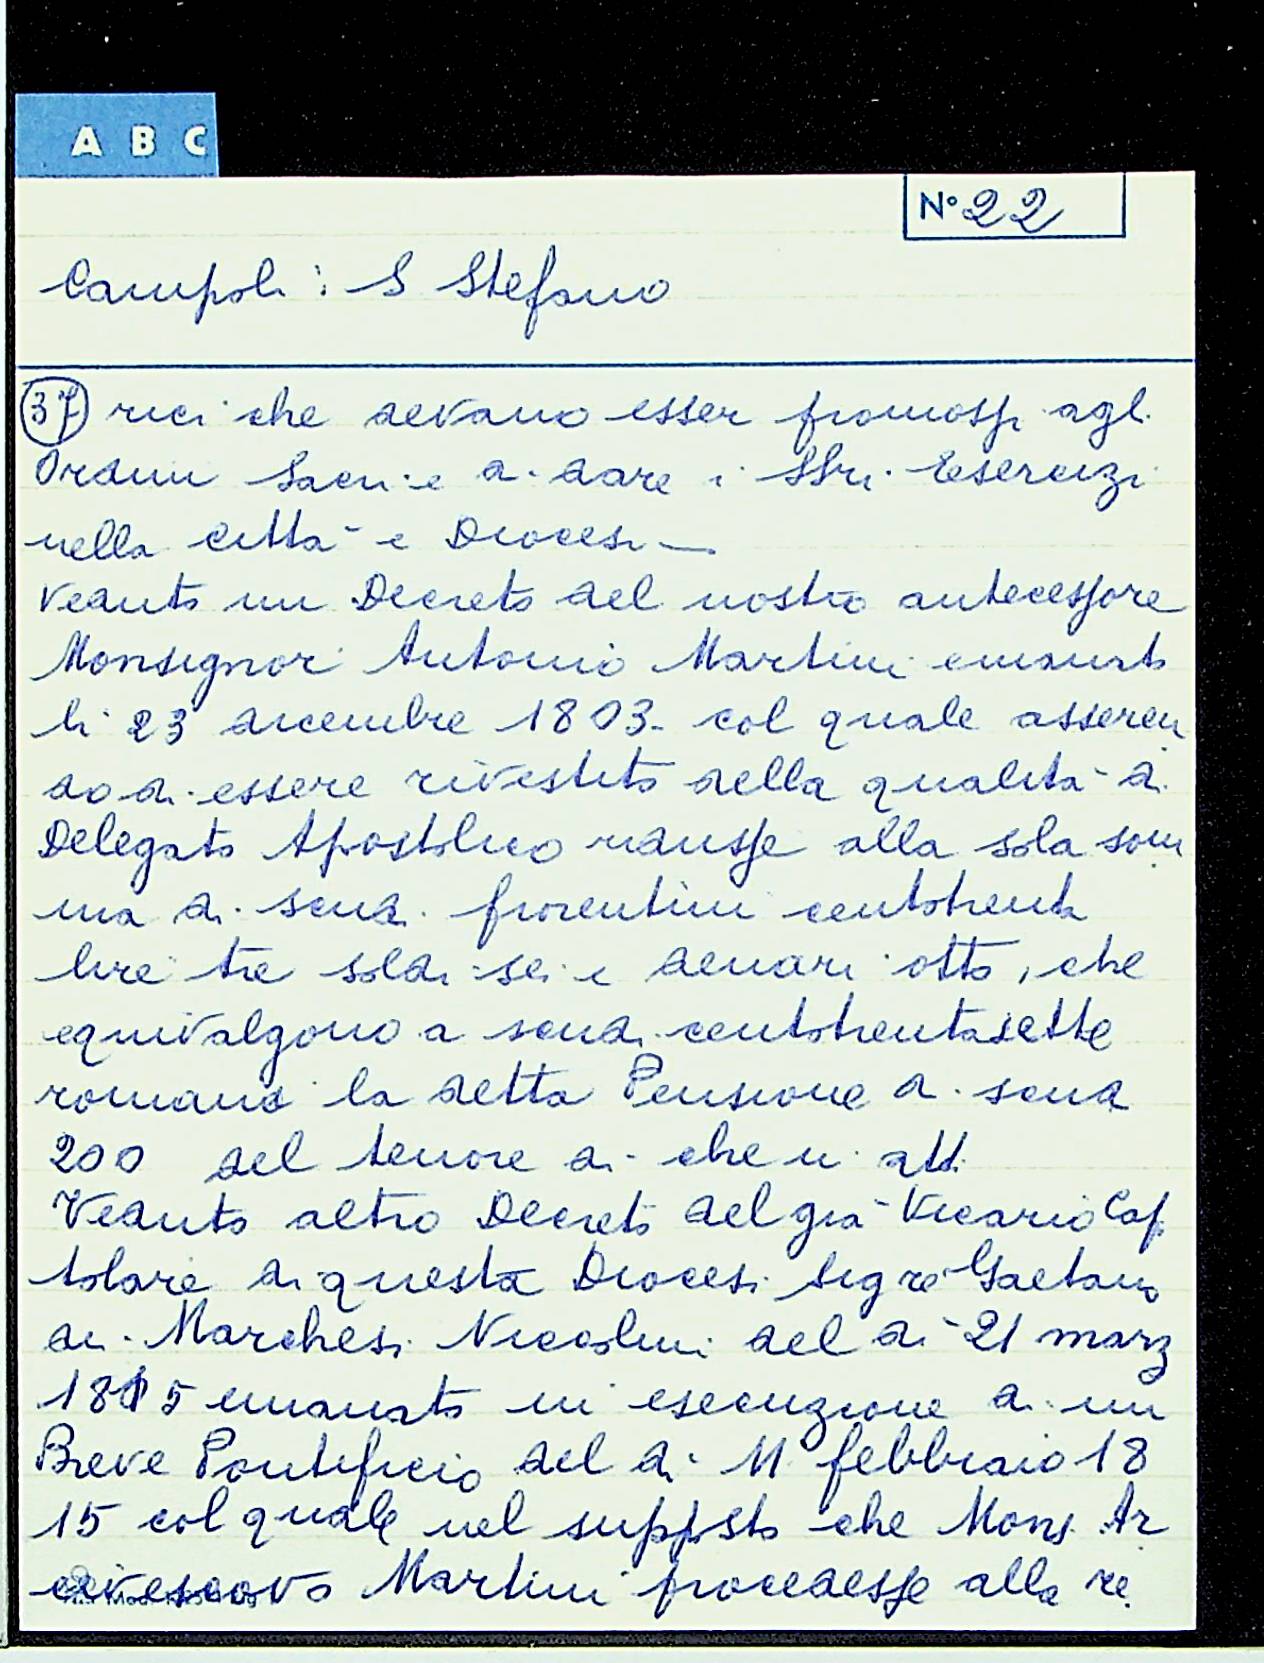 A B C
N° 22
Campoli: S Stefano
37 rici che devano esser promossi agl.
Ordini Sacri e di dare i SSri. Esercizi
nella città e Diocesi —
Veduto un Decreto del nostro antecessore
Monsignor Antonio Martini emanato
li 23 dicembre 1803 - col quale asseren
do di essere rivestito della qualità di
Delegato Apostolico ridusse alla sola som
ma di scudi fiorentini centotrenta
lire tre soldi sei e denari otto, che
equivalgono a scudi centotrentasette
romani la detta Pensione di scudi
200 del tenore di che in atti
Veduto altro Decreto del già Vicario Capi
tolare di questa Diocesi Sigre Gaetano
dei Marchesi Niccolini del di 21 marz
1815 emanato in esecuzione di un
Breve Pontificio del di 11 febbraio 18
15 col quale nel supposto che Mons. Ar
civescovo Martini procedesse alla re